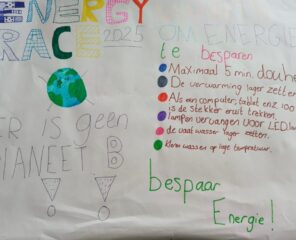 ENERGY
RACE 2025
ER is geen
PLANEET B
OM ENERGIE
te besparen
Maximaal 5 min. douch
De verwarming lager zetten
Als een computer, tablet enz. 100
is de stekker eruit trekken
lampen vervangen voor LED lam
de vaatwasser lager zetten.
kleren wassen op lage temperatuur.
bespaar
Energie!